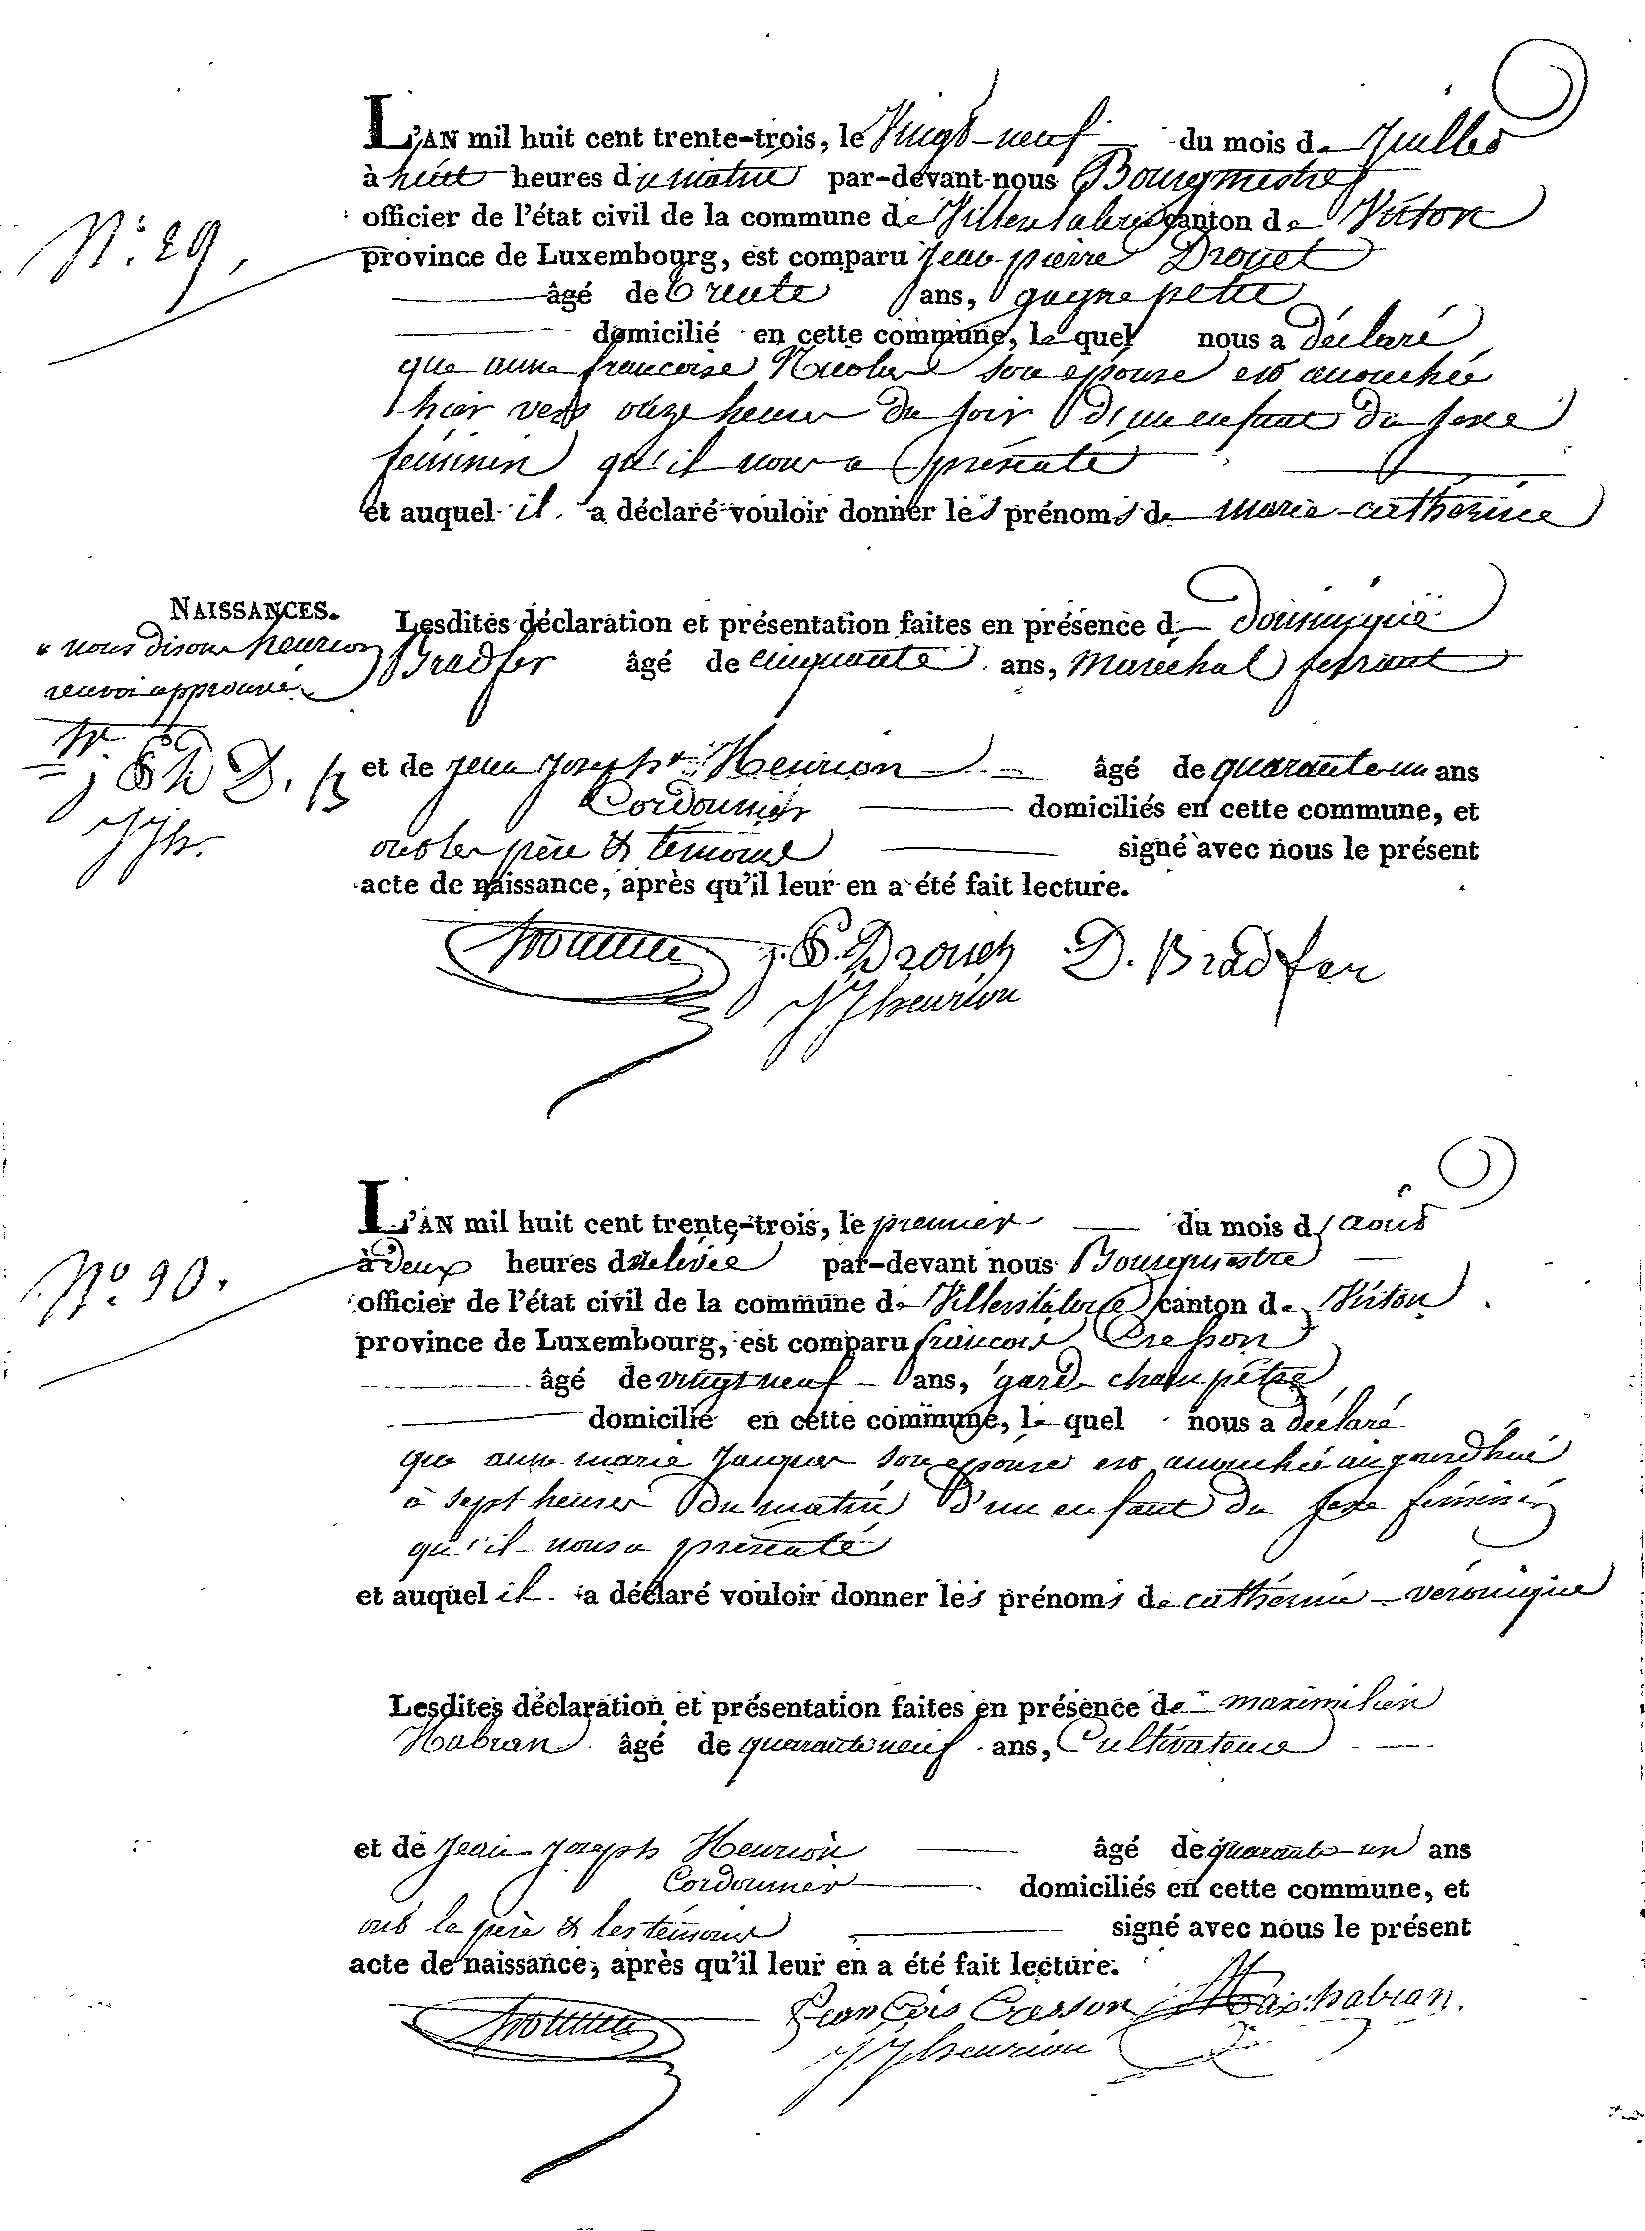 L'AN mil huit cent trente-trois, le Vingt-neuf du mois de Juillet
à huit heures du matin par-devant nous Bourgmestre
officier de l'état civil de la commune de canton de Virton
N.° 29,
province de Luxembourg, est comparu Jean-pierre Drouet
âgé de trente ans, gagne petit
domicilié en cette commune, le quel nous a déclaré
que anne françoise son épouse est accouchée
hier vers onze heures du soir d'un enfant du sexe
féminin qu'il nous a présenté
et auquel il a déclaré vouloir donner les prénoms de marie-cathérine
NAISSANCES.
Lesdites déclaration et présentation faites en présence de Dominique
nous disons heurion
Bradfer âgé de cinquante ans, Maréchal ferrant
renvoi approuvé
et de jean joseph Heurion âgé de quarante un ans
J P D D. B
Cordonnier domiciliés en cette commune, et
JJh.
ont les père & témoins signé avec nous le présent
acte de naissance, après qu'il leur en a été fait lecture.
J. P. Drouet D. Bradfer
JJheurion
L'AN mil huit cent trente-trois, le premier du mois d'aout
à Deux heures de relevée par-devant nous Bourgmestre
N.° 30.
officier de l'état civil de la commune de canton de Virton
province de Luxembourg, est comparu francois Cresson
âgé de vingt neuf ans, garde champêtre
domicilié en cette commune, le quel nous a déclaré
que anne marie Jacques son épouse est accouchée aujourd'hui
à sept heures du matin d'un enfant du sexe féminin
qu'il nous a présenté
et auquel il a déclaré vouloir donner les prénoms de cathérine-véronique
Lesdites déclaration et présentation faites en présence de maximilien
Habran âgé de quarante neuf ans, Cultivateur
et de Jean-Joseph Heurion âgé de quarante-un ans
Cordonnier domiciliés en cette commune, et
ont le père & les témoins signé avec nous le présent
acte de naissance, après qu'il leur en a été fait lecture.
François Cresson Max habran.
JJheurion